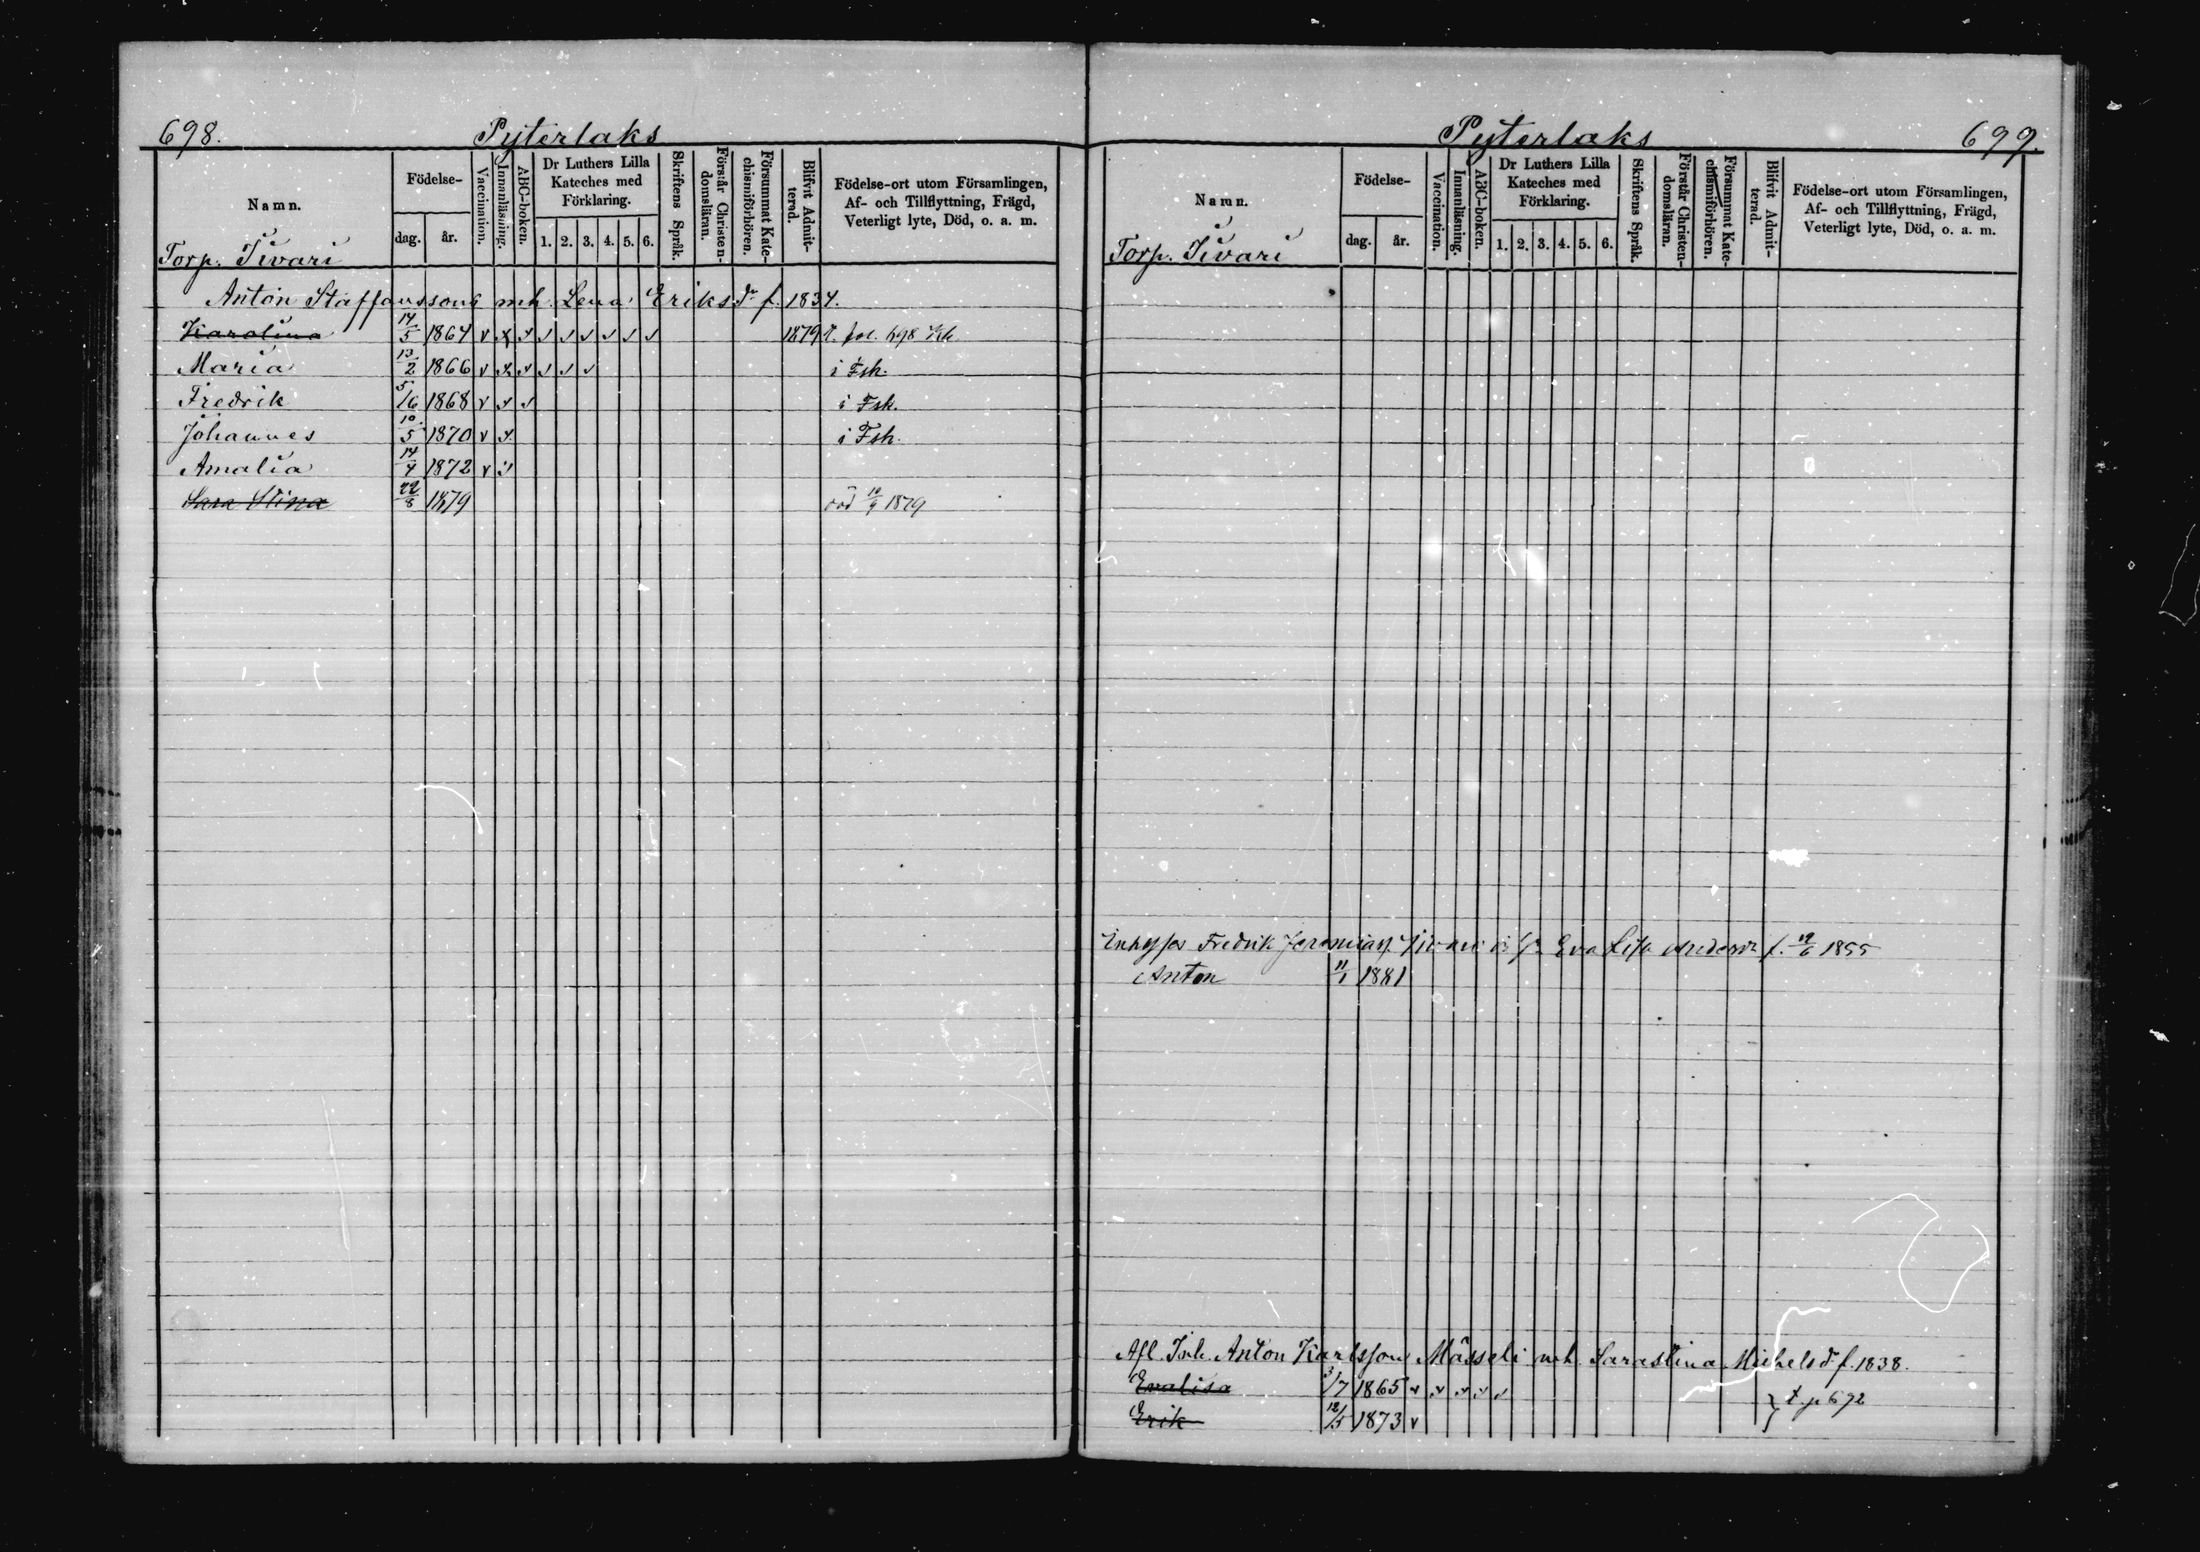 698.
Pyterlaks
Namn.
Födelse-
dag. år.
Vaccination.
Innanläsning.
ABC-boken.
Dr Luthers Lilla Kateches med Förklaring.
1. 2. 3. 4. 5. 6.
Skriftens Språk.
Förstår Christen-domsläran.
Försummat Kate-chismiförhören.
Blifvit Admit-terad.
Födelse-ort utom Församlingen, Af- och Tillflyttning, Frägd, Veterligt lyte, Död, o. a. m.
Torp. Tivari
Anton Staffanssons mh. Lena Eriksdr f. 1834.
Karolina 14/5 1864 v x v v v v v v v 1879 fol. 698
Maria 13/2 1866 v x v v v v i Fsk.
Fredrik 5/6 1868 v v v i Fsk.
Johannes 10/5 1870 v v i Fsk.
Amalia 14/4 1872 v v
Sara Stina 22/8 1879 död 10/9 1879
Pyterlaks
699.
Namn.
Födelse-
dag. år.
Vaccination.
Innanläsning.
ABC-boken.
Dr Luthers Lilla Kateches med Förklaring.
1. 2. 3. 4. 5. 6.
Skriftens Språk.
Förstår Christen-domsläran.
Försummat Kate-chismiförhören.
Blifvit Admit-terad.
Födelse-ort utom Församlingen, Af- och Tillflyttning, Frägd, Veterligt lyte, Död, o. a. m.
Torp. Tivari
Fredrik Jeremiass. Eva Lisa Andersdr f. 19/6 1855
Anton 11/1 1881
Afl. Inh. Anton Karlsson Mässeli mh. Sarastina Michelsdr f. 1838.
Evalisa 3/7 1865 v v v v v
Erik 12/5 1873 v
} t. p 692